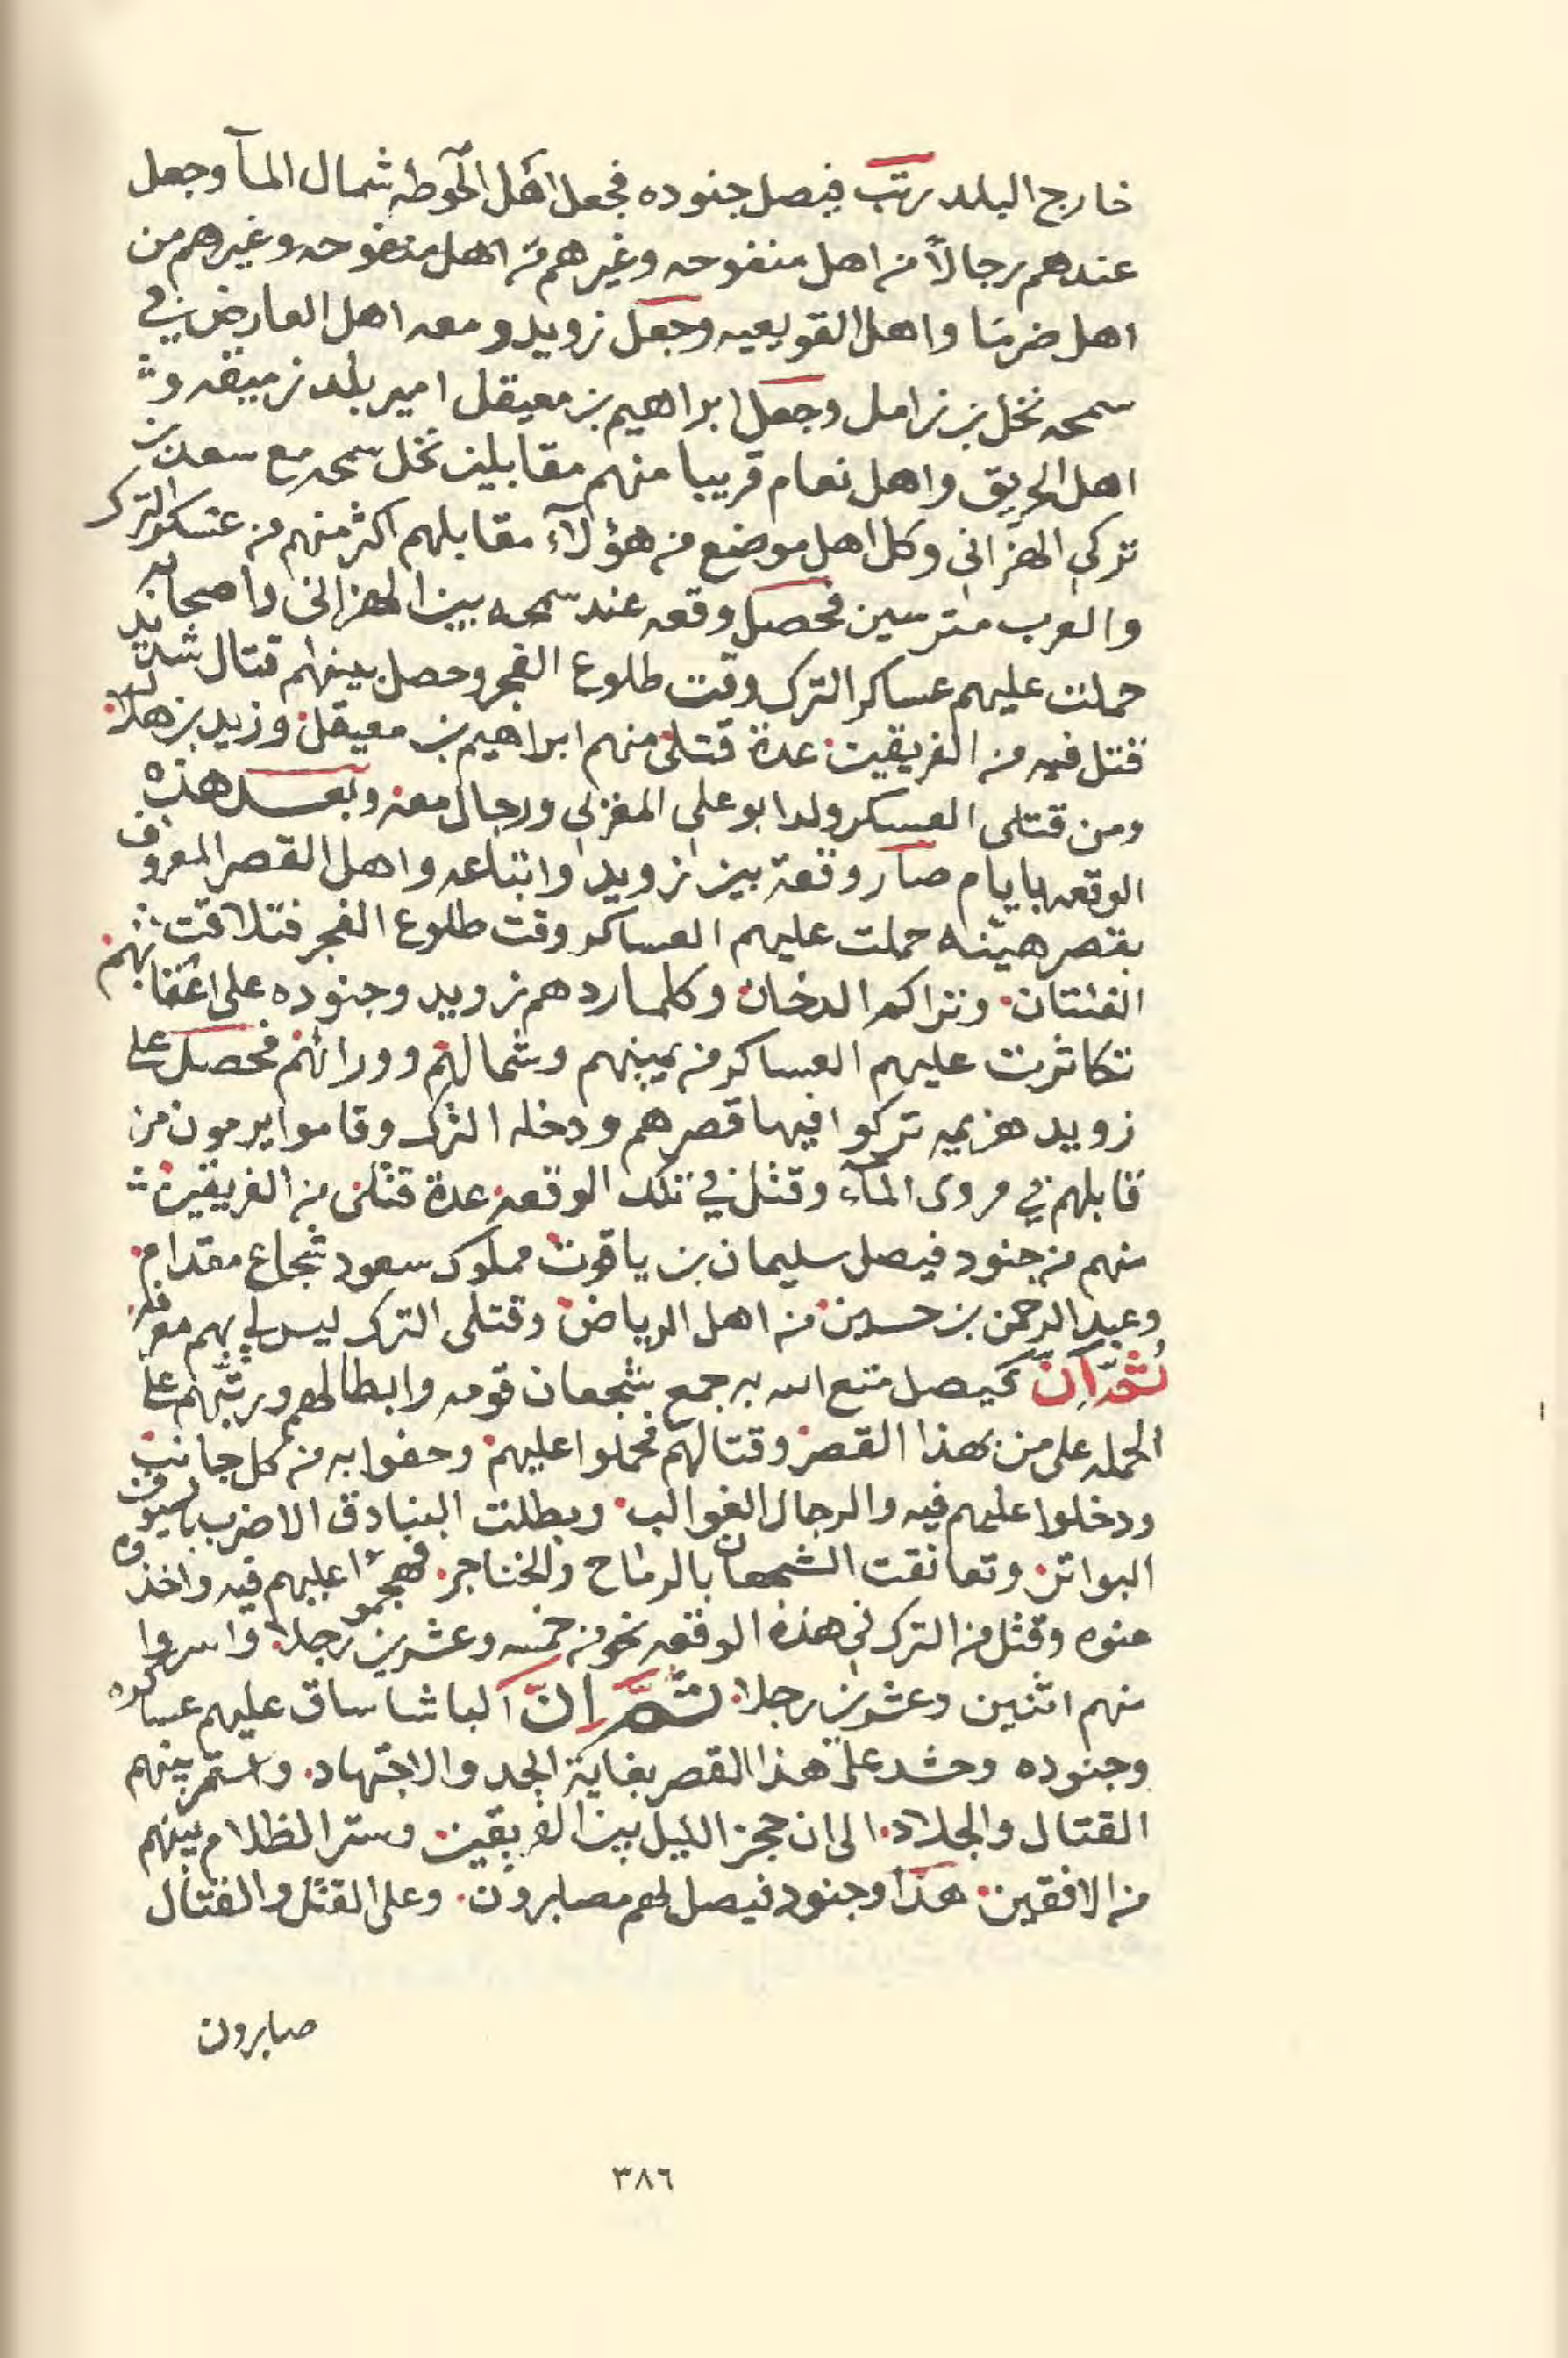 خارج البلد رتب فيصل جنوده فجعل اهل الحوطه شمال المآ وجعل
عندهم رجالاً من اهل منفوحه وغيرهم من اهل منفوحه وغيرهم من
اهل ضرما واهل القويعيه وجعل زويد ومعه اهل العارض في
سمحه نخل بن زامل وجعل ابراهيم بن معيقل امير بلد زميقه و
اهل الحريق واهل نعام قريبا منهم مقابلين نخل سمحه مع سعد بن
تركي الهزاني وكل اهل موضع من هؤلآء مقابلهم اكثر منهم من عسكر الترك
والعرب مترسين فحصل وقعه عند سمحه بين الهزاني واصحابه
حملت عليهم عساكر الترك وقت طلوع الفجر وحصل بينهم قتال شديد
قتل فيه من الفريقين عدة قتلى منهم ابراهيم بن معيقل وزيد بن هلال
ومن قتلى العسكر ولد ابو علي المغربي ورجال معه وبعد هذه
الوقعه بايام صار وقعة بين زويد واتباعه واهل القصر المعروف
بقصر هيته حملت عليهم العساكر وقت طلوع الفجر فتلاقت
الفئتان وتراكم الدخان وكلما ردهم زويد وجنوده على اعقابهم
تكاثرت عليهم العساكر من يمينهم وشمالهم وورائهم فحصل على
زويد هزيمه تركوا فيها قصرهم ودخله الترك وقاموا يرمون من
قابلهم في مروى المآء وقتل في تلك الوقعه عدة قتلى من الفريقين
منهم من جنود فيصل سليمان بن ياقوت مملوك سعود شجاع مقدام
وعبد الرحمن بن حسين من اهل الرياض وقتلى الترك ليس لي بهم معرفه
ثم ان فيصل متع الله به جمع شجعان قومه وابطالهم ورتبهم على
الحمله على من بهذا القصر وقتالهم فحملوا عليهم وحفوا به من كل جانب
ودخلوا عليهم فيه والرجال الغوالب وبطلت البنادق الا ضرب بالسيوف
البواتر وتعانقت الشجعان بالرماح والخناجر فهجموا عليهم فيه واخذوه
عنوه وقتل من الترك في هذه الوقعه نحو من خمسه وعشرين رجلا واسروا
منهم اثنين وعشرين رجلا ثم ان الباشا ساق عليهم عساكره
وجنوده وحشد على هذا القصر بغاية الجد والاجتهاد واستمر بينهم
القتال والجلاد الى ان حجز الليل بين الفريقين وستر الظلام بينهم
من الافقين هذا وجنود فيصل لهم مصابرون وعلى القتل والقتال
صابرون
٣٨٦